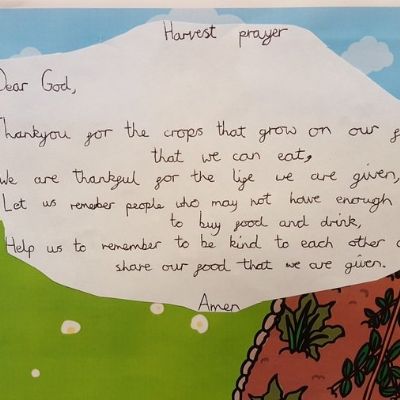 Harvest prayer
Dear God,
Thankyou for the crops that grow on our
that we can eat,
We are thankful for the life we are given,
Let us remeber people who may not have enough
to buy food and drink,
Help us to remember to be kind to each other
share our food that we are given.
Amen